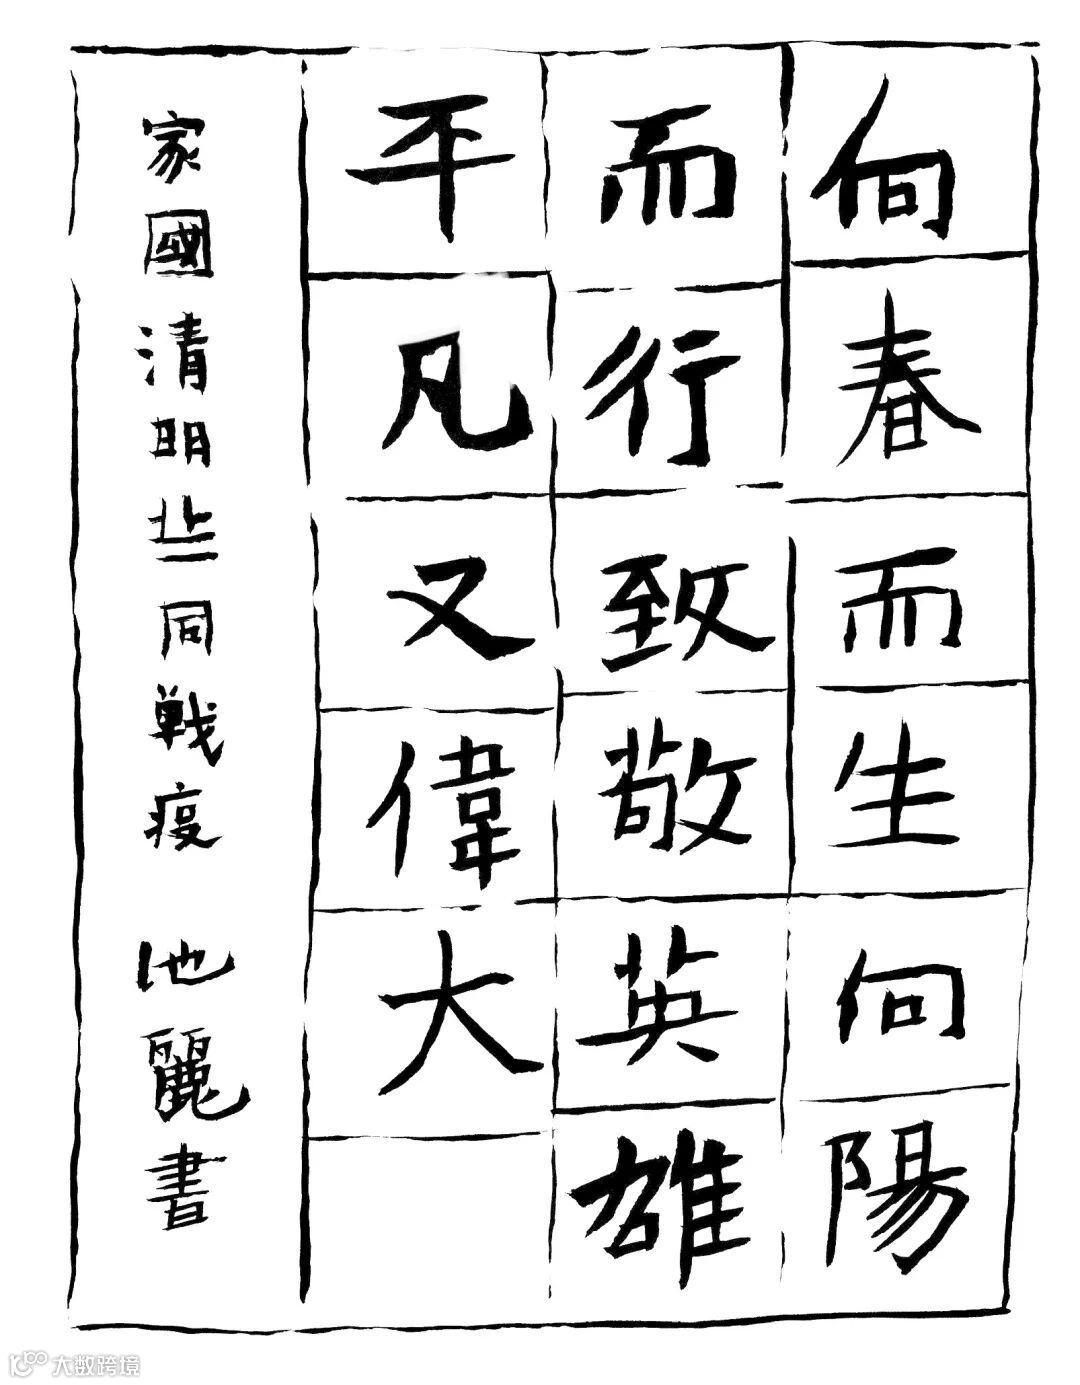 向春而生向陽
而行致敬英雄
平凡又偉大
家國清明同戦疫 池麗書
大数跨境